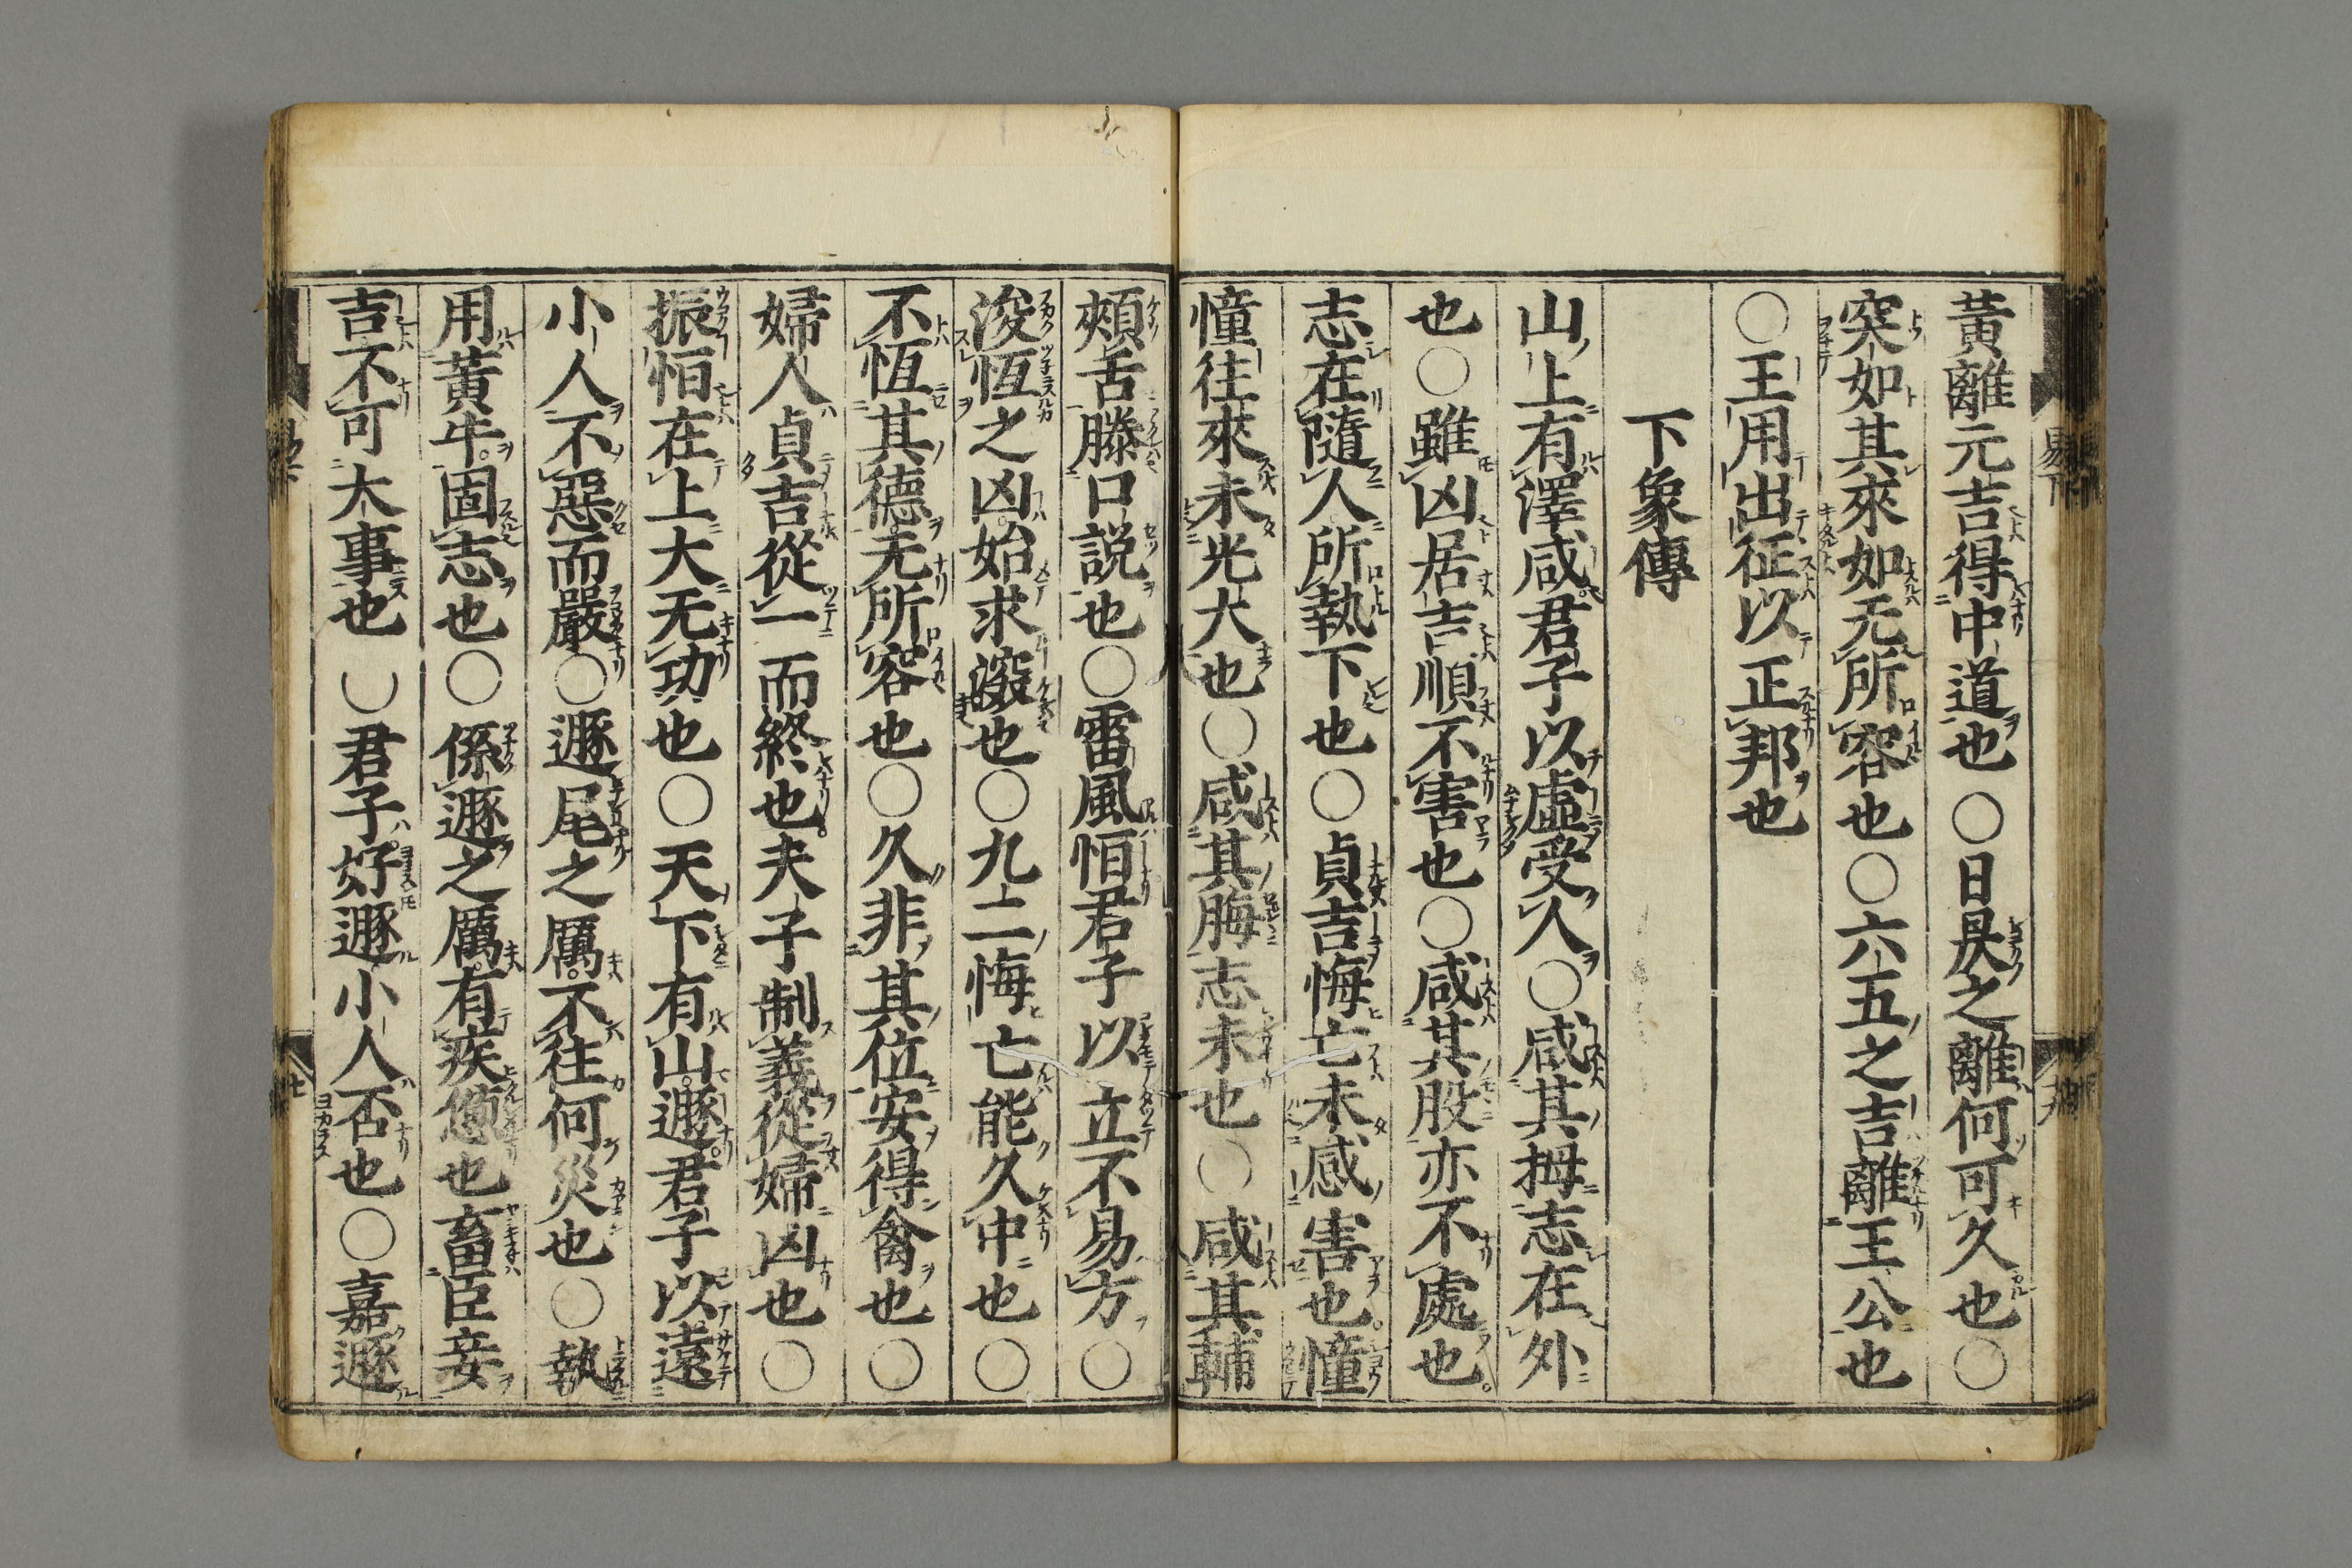 黃離元吉得中道也○日昃之離何可久也○
突如其來如无所容也○六五之吉離王公也
○王用出征以正邦也
下象傳
山上有澤咸君子以虛受人○咸其拇志在外
也○雖凶居吉順不害也○咸其股亦不處也
志在隨人所執下也○貞吉悔亡未感害也憧
憧往來未光大也○咸其脢志未也○咸其輔
頰舌滕口說也○雷風恒君子以立不易方○
浚恆之凶始求深也○九二悔亡能久中也○
不恆其德无所容也○久非其位安得禽也○
婦人貞吉從一而終也夫子制義從婦凶也○
振恒在上大无功也○天下有山遯君子以遠
小人不惡而嚴○遯尾之厲不往何災也○執
用黃牛固志也○係遯之厲有疾憊也畜臣妾
吉不可大事也○君子好遯小人否也○嘉遯